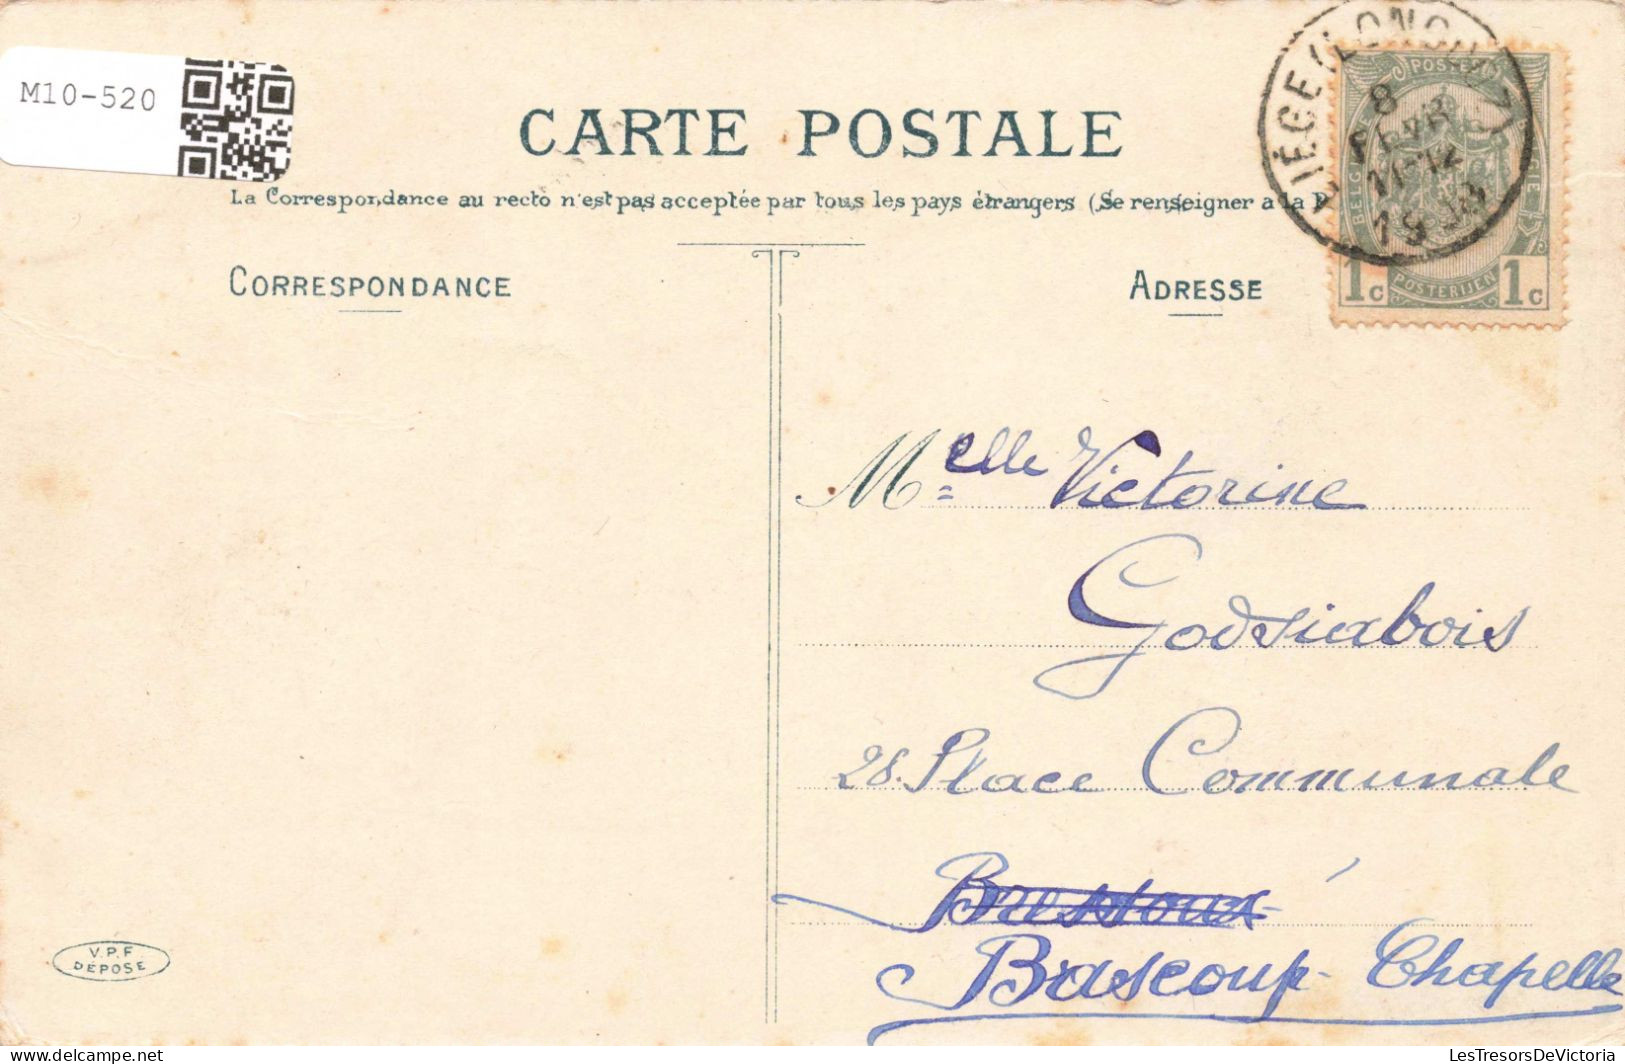 M10-520
CARTE POSTALE
La Correspondance au recto n'est pas acceptée par tous les pays étrangers (Se renseigner a la P
CORRESPONDANCE
ADRESSE
LIÈGE (LONGDOZ)
8
FEVR
11-12
19
POSTES
BELGIQUE
BELGIE
1c POSTERIJEN 1c
Melle Victorine
Godsiabois
28. Place Communale
Bressoux
Bascoup-Chapelle
V.P.F
DÉPOSÉ
hebergé par delcampe.net
LesTresorsDeVictoria